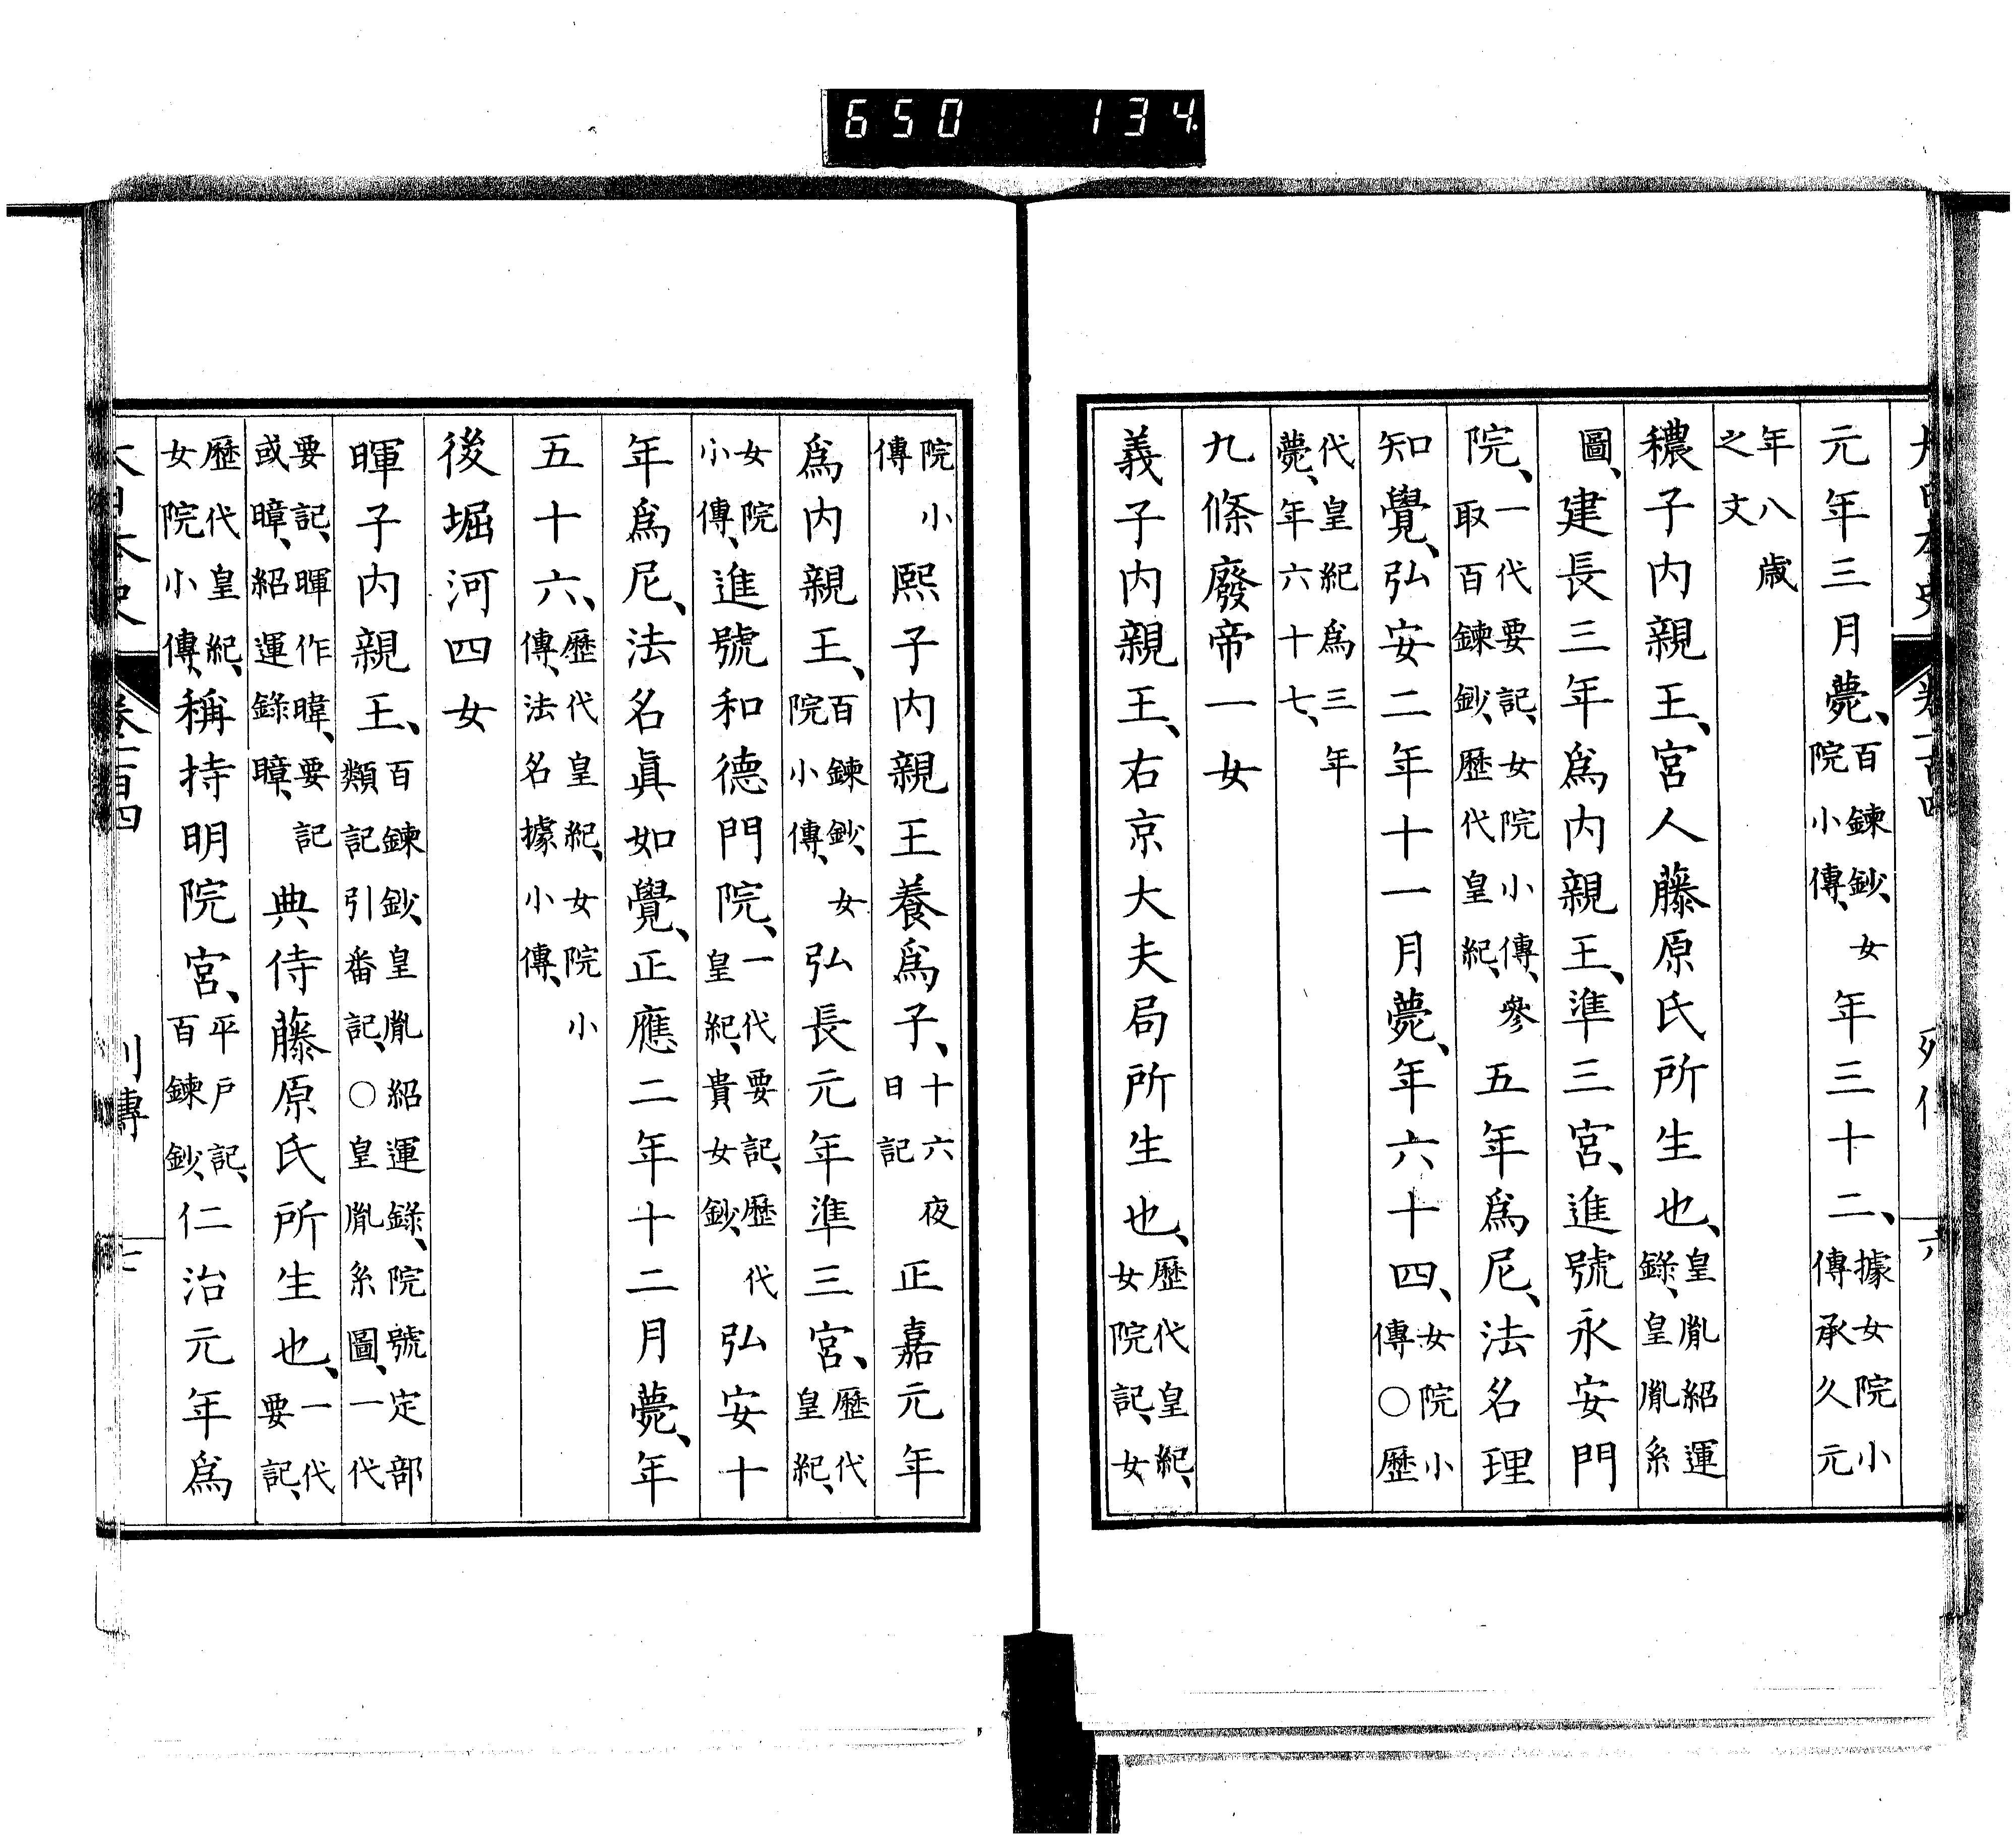 650 134
元年三月薨、百鍊鈔、女院小傳、年三十二、據女院小傳承久元
年八歲之文
穠子內親王、宮人藤原氏所生也、皇胤紹運錄、皇胤系
圖、建長三年爲內親王、準三宮、進號永安門
院、一代要記、女院小傳、參取百鍊鈔、歷代皇紀、五年爲尼、法名理
知覺、弘安二年十一月薨、年六十四、女院小傳○歷
代皇紀爲三年薨、年六十七、
九條廢帝一女
義子內親王、右京大夫局所生也、歷代皇紀、女院記、女
院小傳熙子內親王養爲子、十六夜日記正嘉元年
爲內親王、百鍊鈔、女院小傳、弘長元年準三宮、歷代皇紀、
女院小傳、進號和德門院、一代要記、歷代皇紀、貴女鈔、弘安十
年爲尼、法名眞如覺、正應二年十二月薨、年
五十六、歷代皇紀、女院小傳、法名據小傳、
後堀河四女
暉子內親王、百鍊鈔、皇胤紹運錄、院號定部類記引番記、○皇胤系圖、一代
要記、暉作暐、要記或暲、紹運錄暲、典侍藤原氏所生也、一代要記、
歷代皇紀、女院小傳、稱持明院宮、平戶記、百鍊鈔、仁治元年爲